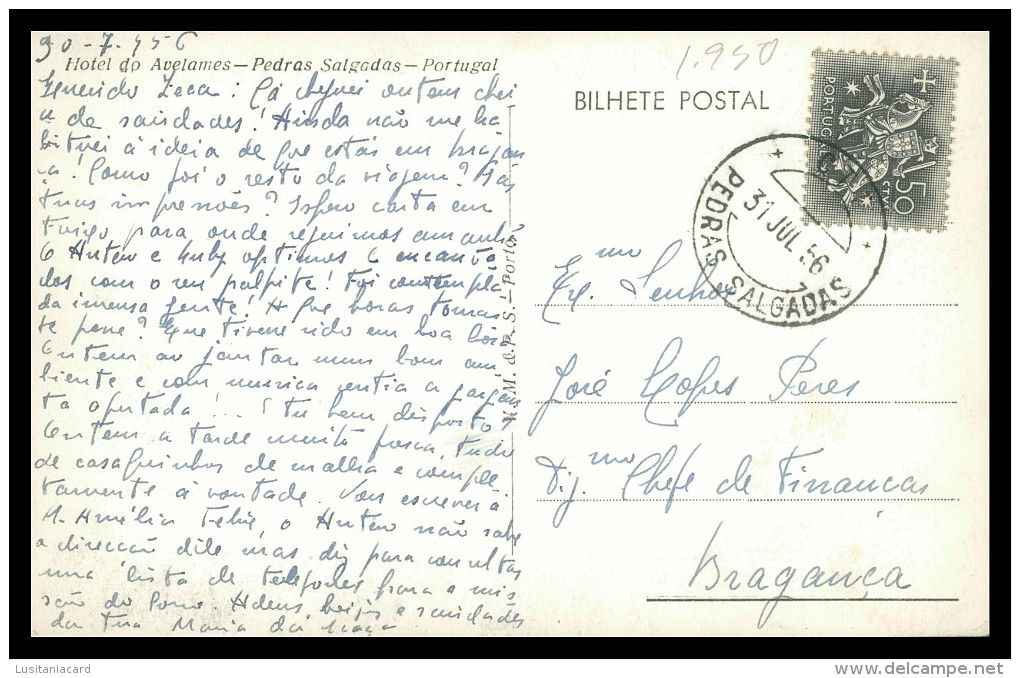 30-7-956
Hotel do Avelames — Pedras Salgadas — Portugal
Querido Zeca: Cá cheguei ontem chei
a de saudades! Ainda não me ha
bituei á ideia de que estás em Bragan
ça! Como foi o resto da viagem? As
tuas impressões? Espero carta em
para onde seguimos amanhã
O Antero e optimos e encanta
dos com o seu palpite! Foi contempla
da imensa gente! A que horas tomas
te
Ontem ao jantar num bom am
biente e com musica sentia a gargan
ta apertada!... E tu bem disposto?
Ontem a tarde muito fresca, tudo
de casaquinhos de malha e comple
tamente á vontade. Vou escrever á
M. Amélia o Antero não sabe
a direcção dele mas diz para consultar
uma lista de telefones para a mis
são do Adeus beijos e saudades
da tua Maria da Graça
M. & R. S. — Porto
BILHETE POSTAL
1.950
PORTUGAL
50
CTVS
PEDRAS SALGADAS
31 JUL 56
Exmo Senhor
José Lopes Peres
Digmo Chefe de Financas
Bragança
Lusitaniacard
delcampe.net